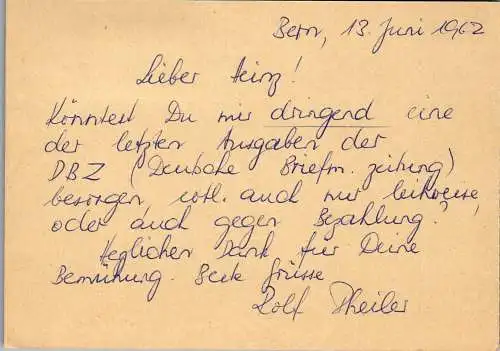 Bern, 13. Juni 1962
Lieber Heinz!
Könntest Du mir dringend eine
der letzten Ausgaben der
DBZ (Deutsche Briefm. zeitung)
besorgen, evtl. auch nur leihweise,
oder auch gegen Bezahlung?
Herzlichen Dank für Deine
Bemühung. Beste Grüsse
Rolf Theiler